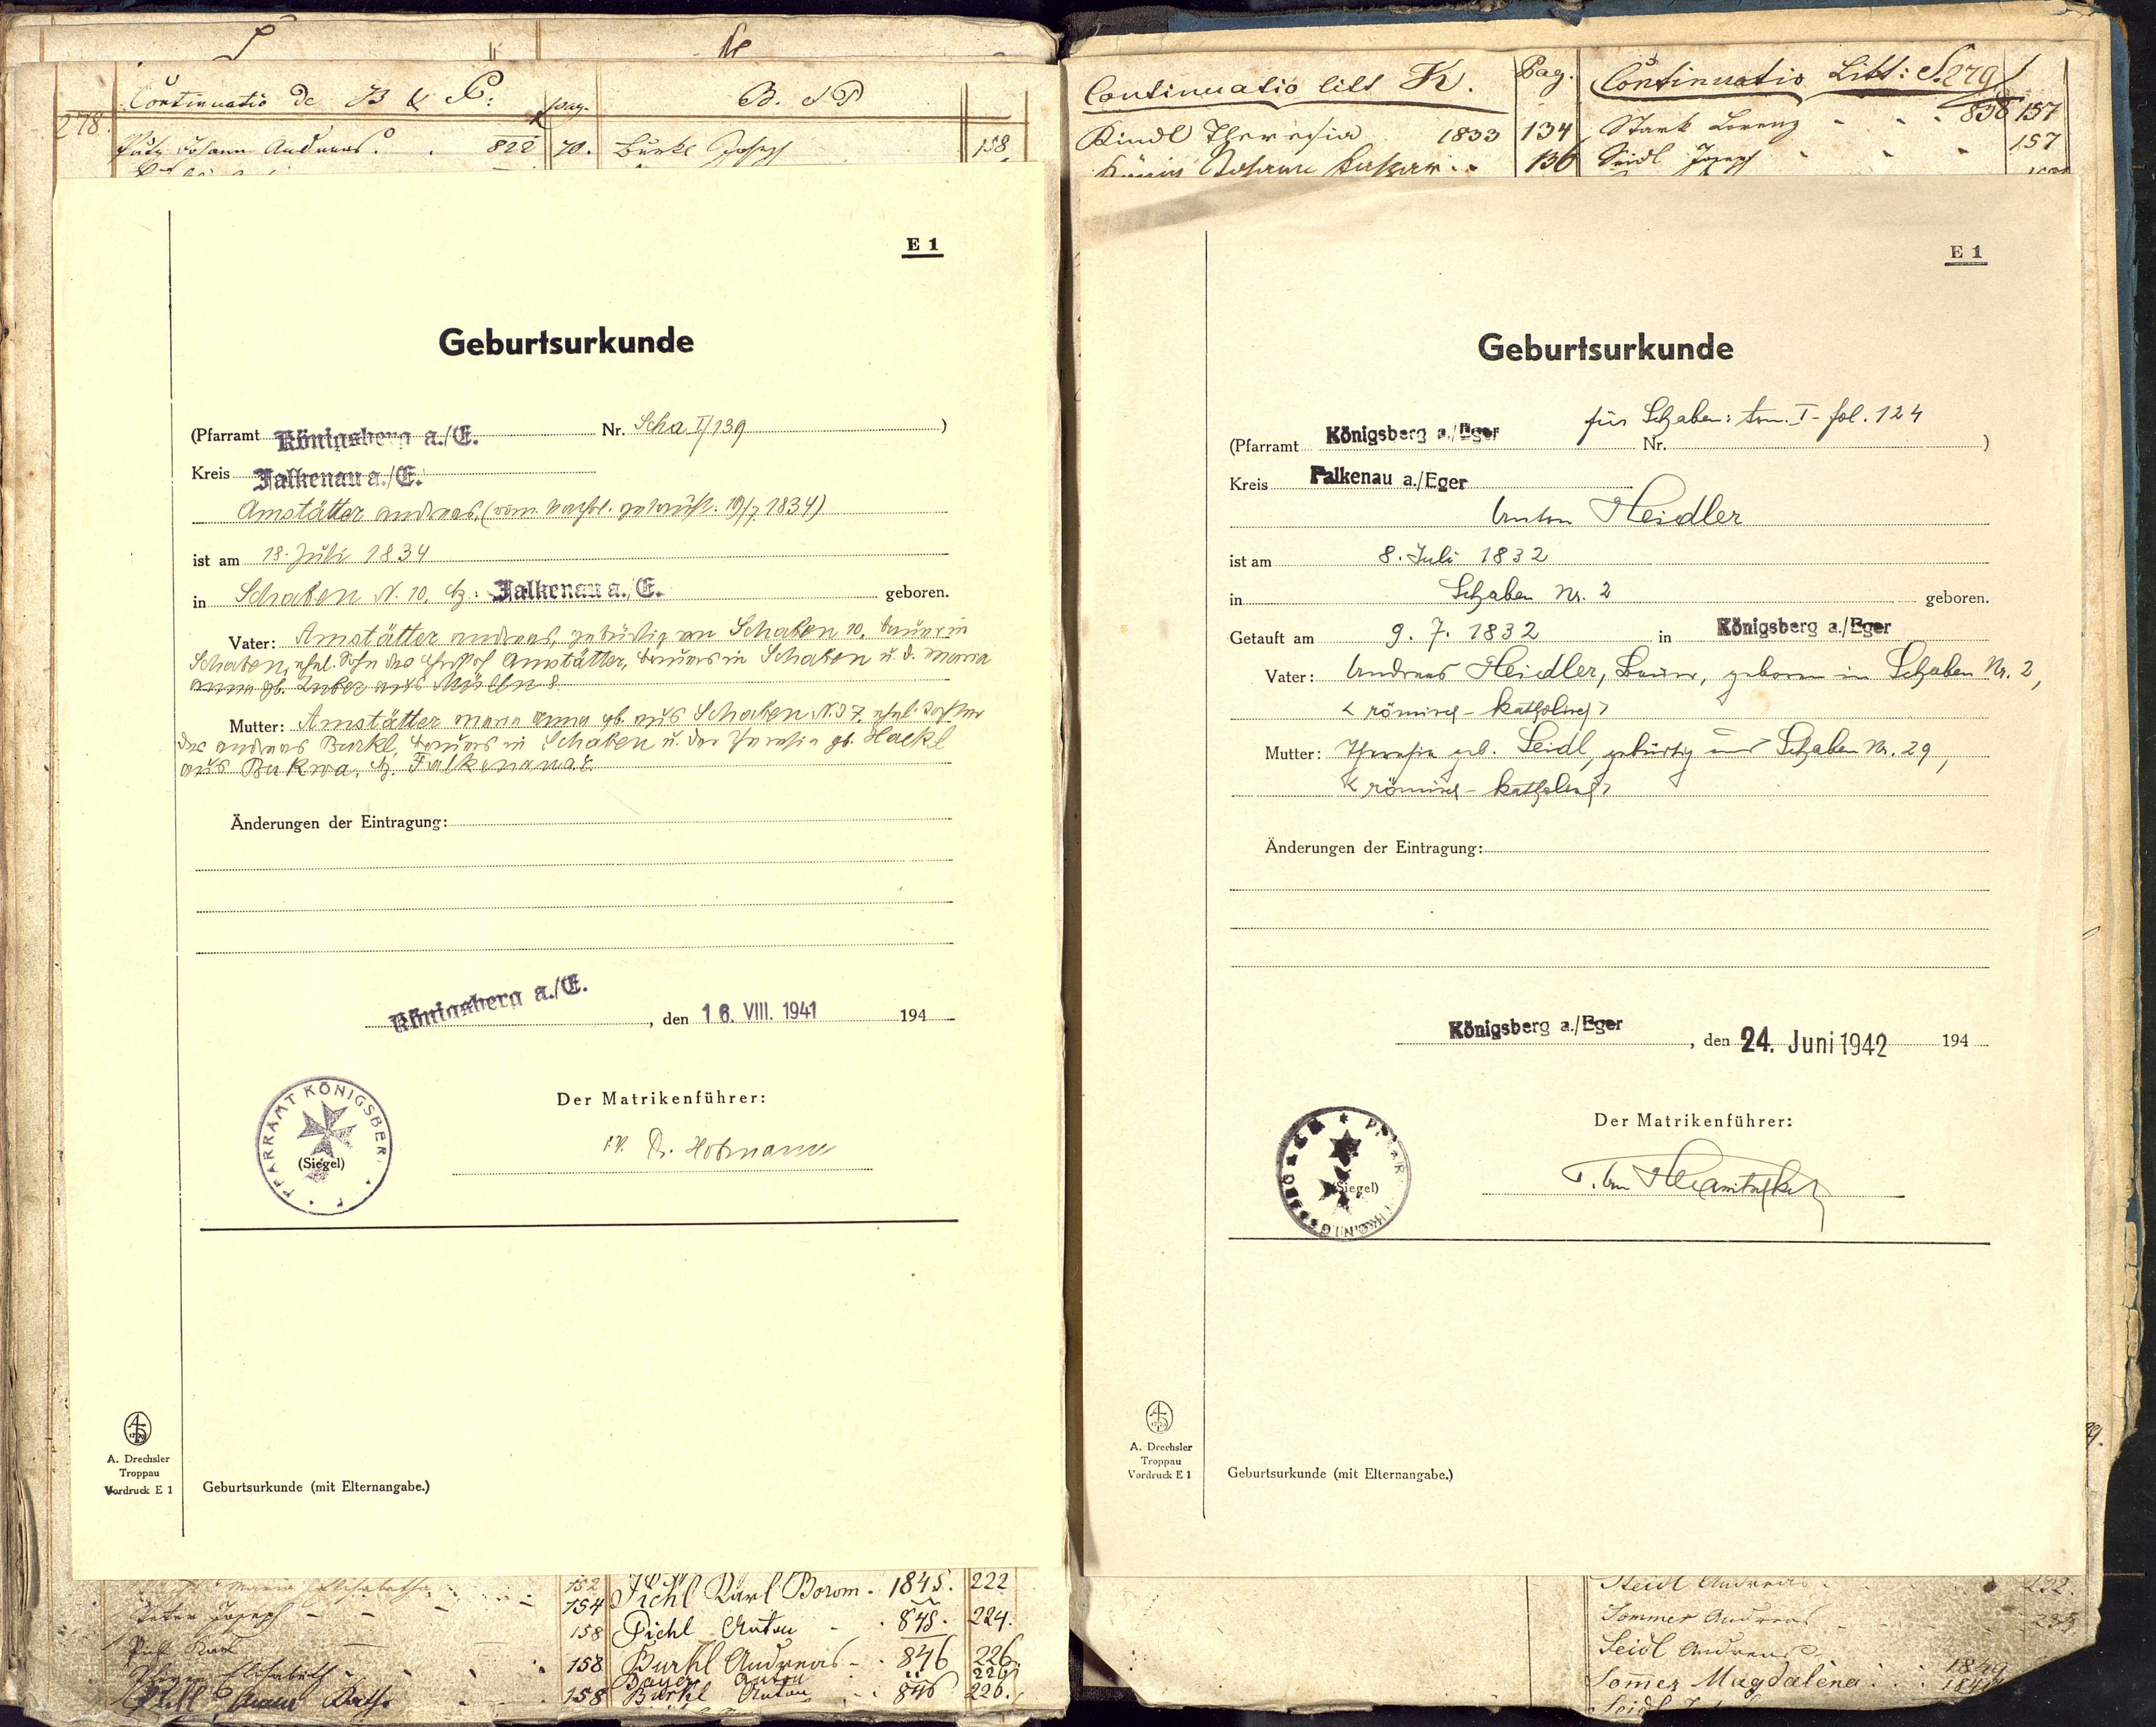 278.
Continuatio de B & P:
pag.
B. & P
Pütz Johann Andreas. 822 70. Burkl Joseph 158
E 1
Geburtsurkunde
(Pfarramt Königsberg a./E. Nr. Scha I/139 )
Kreis Falkenau a./E.
Amstätter Andreas, (röm. kathol. getauft. 19/7 1834)
ist am 18. Juli 1834
in Schaben N. 10, Bz: Falkenau a. E. geboren.
Vater: Amstätter Andreas, gebürtig von Schaben 10, Bauer in
Schaben, ehel. Sohn des Amstätter, Bauers in Schaben u. d. Maria
Anna gb. aus 8.
Mutter: Amstätter Maria Anna gb. aus Schaben N. 37, ehel. Tochter
des Andreas Burkl, Bauers in Schaben u. der Theresia gb. Hackl
aus Bukwa, Bz. Falkenau a. E
Änderungen der Eintragung:
Königsberg a./E. , den 16. VIII. 1941 194
Der Matrikenführer:
PFARRAMT KÖNIGSBER
(Siegel)
Hofmann
A. Drechsler
Troppau
Vordruck E 1
Geburtsurkunde (mit Elternangabe.)
Maria Elisabetha 152
Peter Joseph 154
158
Elisabeth 158
Anna Kath. 158
Pichl Karl Borom. 1845. 222
Pichl Anton 845. 224.
Burkl Andreas 846 226.
Bayer Anton 226
Burkl Anton 846 226.
Continuatio litt K. Pag.
Kindl Theresia 1833 134
König Johann 136
Continuatio Litt: S. 279
Stark Lorenz 838 157
Seidl Joseph 157
E 1
Geburtsurkunde
für Schaben: tom. I - fol. 124
(Pfarramt Königsberg a./Eger Nr. )
Kreis Falkenau a./Eger
Anton Heidler
ist am 8. Juli 1832
in Schaben Nr. 2 geboren.
Getauft am 9. 7. 1832 in Königsberg a./Eger
Vater: Andreas Heidler, Bauer, geboren in Schaben Nr. 2,
< römisch - katholisch >
Mutter: Theresia geb. Seidl, gebürtig aus Schaben Nr. 29,
< römisch - katholisch >
Änderungen der Eintragung:
Königsberg a./Eger , den 24. Juni 1942 194
Der Matrikenführer:
(Siegel)
A. Drechsler
Troppau
Vordruck E 1
Geburtsurkunde (mit Elternangabe.)
Seidl Andreas 232.
Sommer Andreas
Seidl Andreas
Somer Magdalena